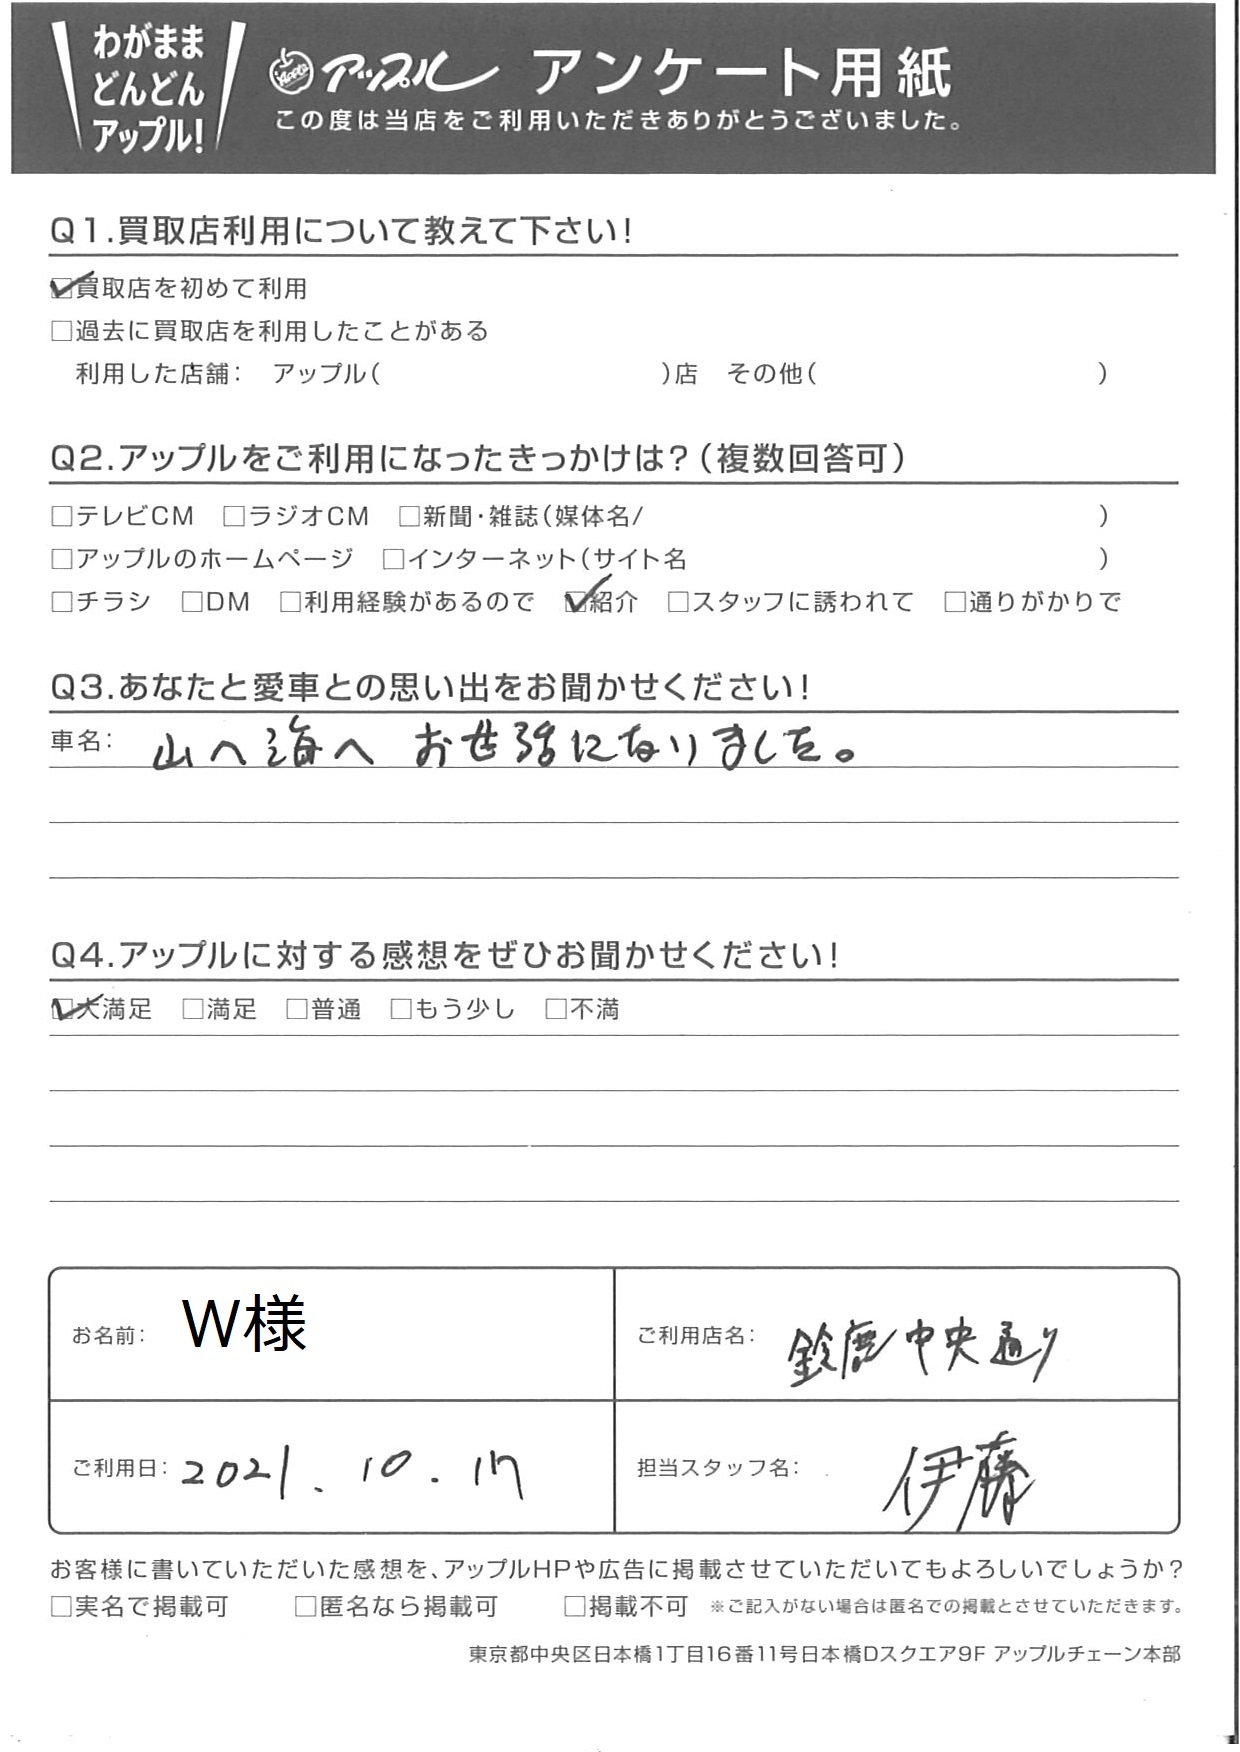 わがまま
どんどん
アップル!
Apple アップル アンケート用紙
この度は当店をご利用いただきありがとうございました。
Q1.買取店利用について教えて下さい!
☑買取店を初めて利用
□過去に買取店を利用したことがある
利用した店舗: アップル( )店 その他( )
Q2.アップルをご利用になったきっかけは?(複数回答可)
□テレビCM □ラジオCM □新聞・雑誌(媒体名/ )
□アップルのホームページ □インターネット(サイト名 )
□チラシ □DM □利用経験があるので ☑紹介 □スタッフに誘われて □通りがかりで
Q3.あなたと愛車との思い出をお聞かせください!
車名: 山へ海へ お世話になりました。
Q4.アップルに対する感想をぜひお聞かせください!
☑大満足 □満足 □普通 □もう少し □不満
お名前: W様
ご利用店名: 鈴鹿中央通り
ご利用日: 2021.10.17
担当スタッフ名: 伊藤
お客様に書いていただいた感想を、アップルHPや広告に掲載させていただいてもよろしいでしょうか?
□実名で掲載可 □匿名なら掲載可 □掲載不可 ※ご記入がない場合は匿名での掲載とさせていただきます。
東京都中央区日本橋1丁目16番11号日本橋Dスクエア9F アップルチェーン本部